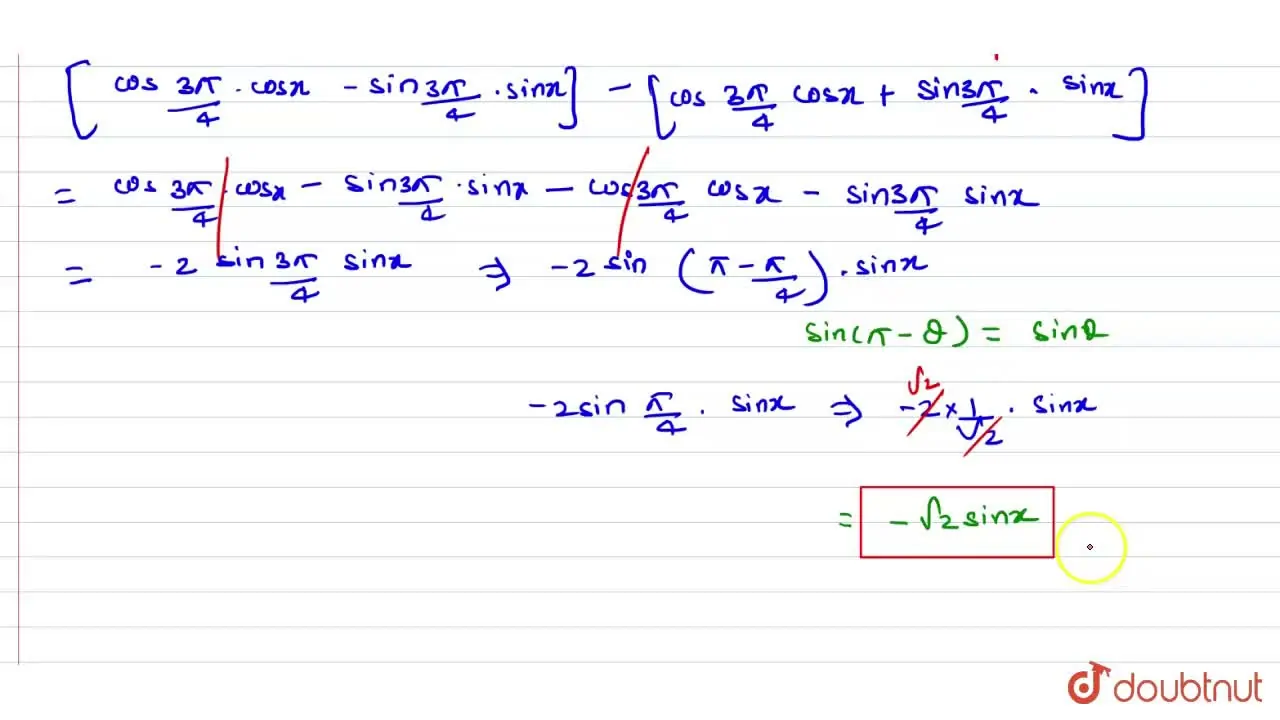 [cos 3π/4 . cosx - sin 3π/4 . sinx] - [cos 3π/4 cosx + sin 3π/4 . sinx]
= cos 3π/4 . cosx - sin 3π/4 . sinx - cos 3π/4 cosx - sin 3π/4 sinx
= -2 sin 3π/4 sinx ⇒ -2 sin (π - π/4) . sinx
sin(π - θ) = sinθ
√2
-2 sin π/4 . sinx ⇒ -2 × 1/√2 . sinx
= -√2 sinx
doubtnut